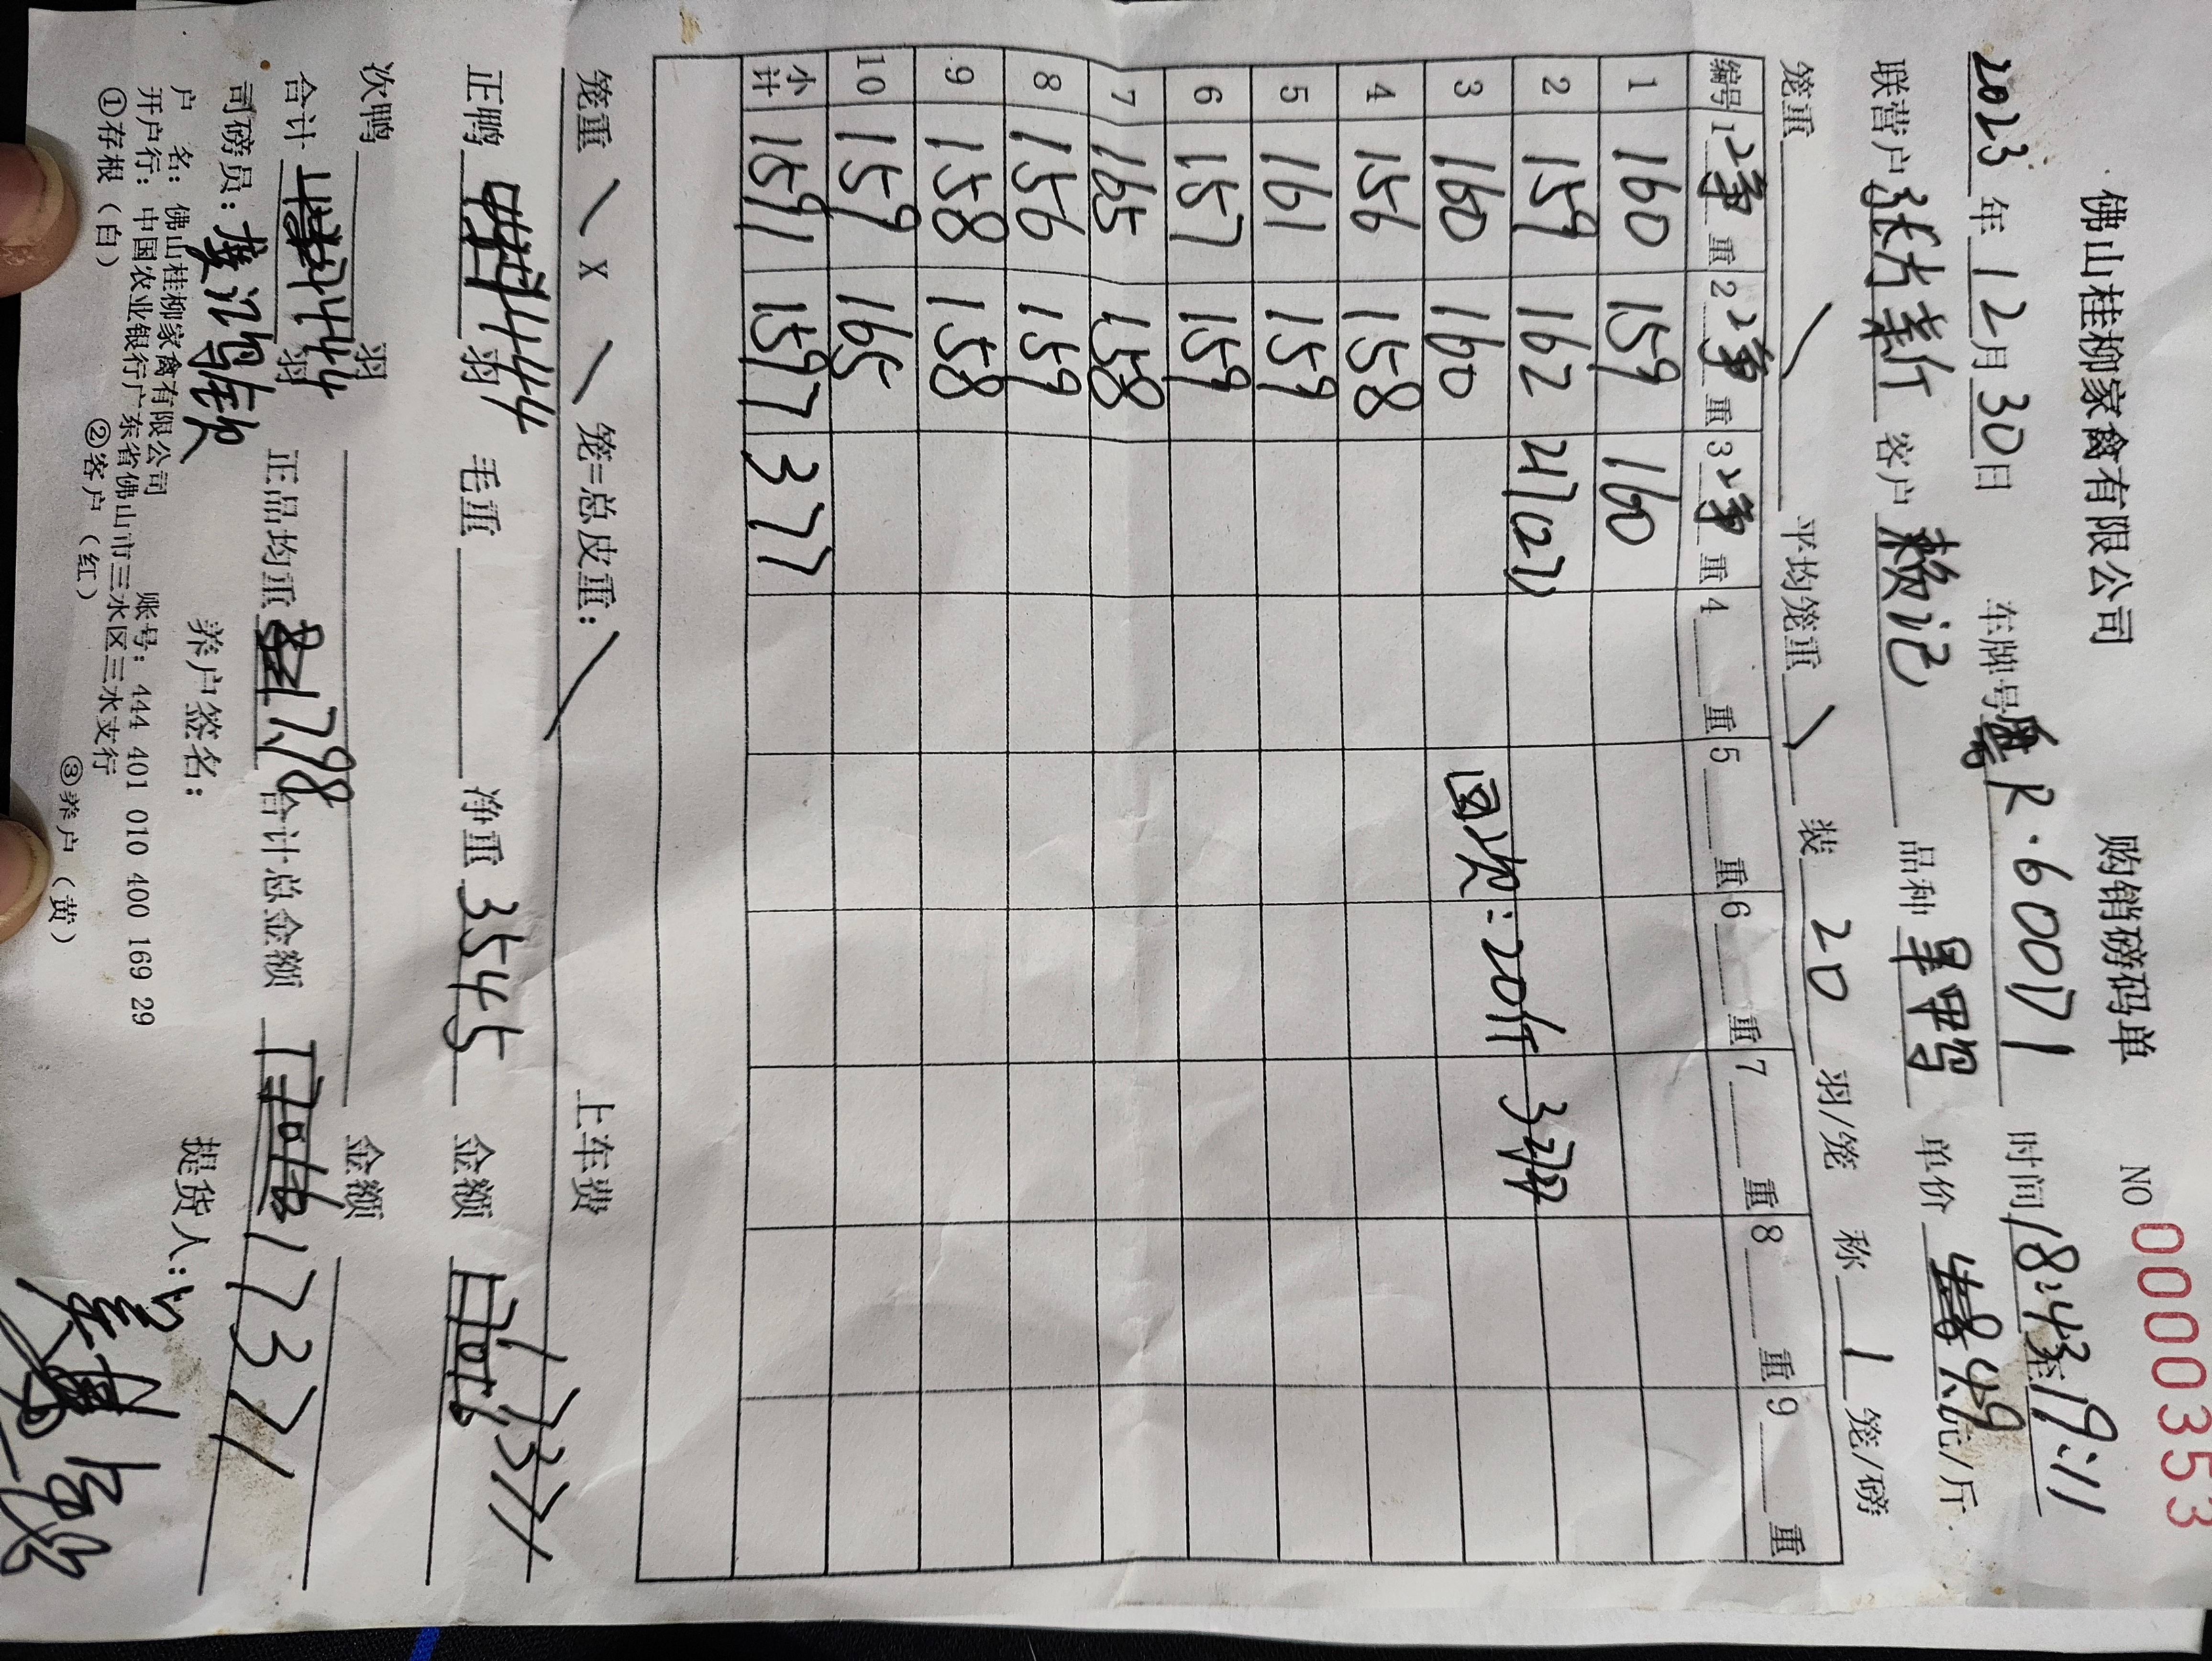 佛山桂柳家禽有限公司 购销磅码单 NO 0000353
2023年12月30日 车牌号 粤R·600D1 时间18:43至19:11
联营户 客户 赖记 品种 单价 4.9元/斤
笼重 \ 平均笼重 \ 装 20 羽/笼 称 1 笼/磅
编号 1 净重 2 净重 3 净重 4 重 5 重 6 重 7 重 8 重 9 重
1 160 159 160
2 159 162
3 160 160
4 156 158
5 161 159
6 157 159
7 165 158
8 156 159
9 158 158
10 159 165
小计 1591 1597 377
20斤
笼重 \ X \ 笼=总皮重: \ 上车费
正鸭 444 羽 毛重 净重 3545 金额 17371
次鸭 羽 金额
合计 444 羽 正品均重 7.98 合计总金额 17371
司磅员: 养户签名: 提货人:
户 名: 佛山桂柳家禽有限公司 账号: 444 401 010 400 169 29
开户行: 中国农业银行广东省佛山市三水区三水支行
①存根（白） ②客户（红） ③养户（黄）